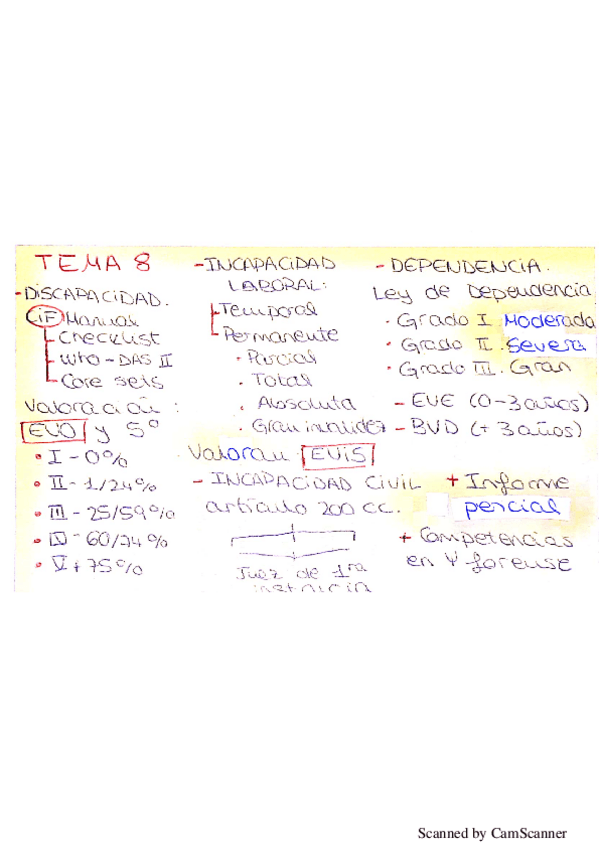 TEMA 8
- DISCAPACIDAD.
CIF Manual
Checklist
WHO - DAS II
Core sets
Valoración :
EVO y 5º
• I - 0%
• II - 1/24%
• III - 25/59%
• IV - 60/74%
• V + 75%
- INCAPACIDAD
LABORAL:
Temporal
Permanente
• Parcial
• Total
• Absoluta
• Gran invalidez
Valoran EVIS
- INCAPACIDAD CIVIL
artículo 200 cc.
Juez de 1ra
instancia
- DEPENDENCIA.
Ley de Dependencia
• Grado I Moderada
• Grado II. Severa
• Grado III. Gran
- EVE (0-3 años)
- BVD (+ 3 años)
+ Informe
pericial
+ Competencias
en Ψ forense
Scanned by CamScanner